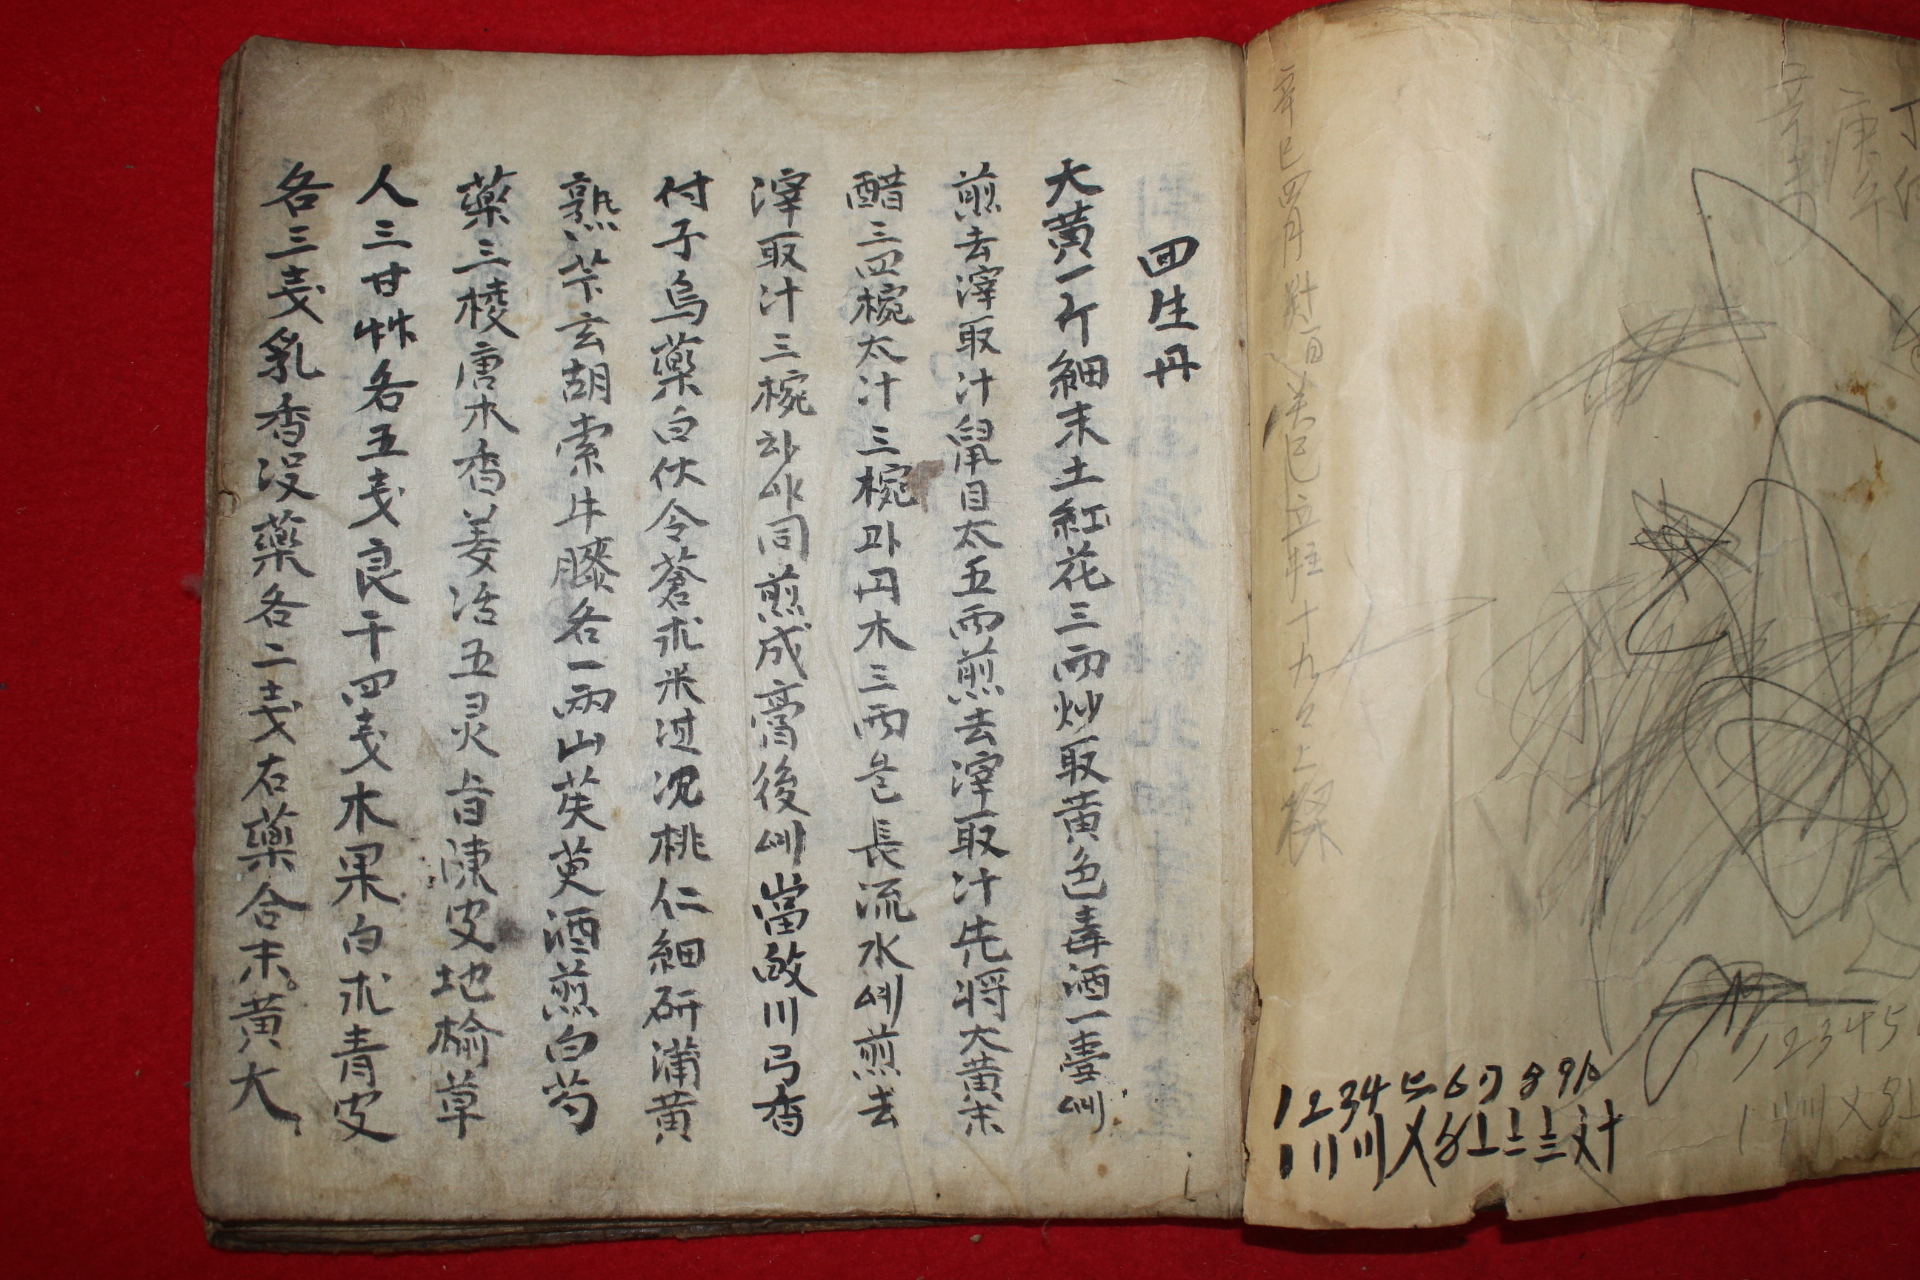 回生丹
大黃一斤細末土紅花三兩炒取黃色毒酒一壺에
煎去滓取汁鼠目太五兩煎去滓取汁先将大黃末
醋三四椀太汁三椀과丹木三兩로長流水에煎去
滓取汁三椀하야同煎成膏後에當歸川弓香
付子烏藥白伏令蒼朮米过沈桃仁細研蒲黃
熟芐玄胡索牛膝各一兩山茱萸酒煎白芍
藥三棱唐木香姜活五灵脂陳皮地榆草
人三甘艸各五戔良干四戔木果白朮青皮
各三戔乳香没藥各二戔右藥合末黃大
辛巳四月
十九
上樑
庚午
1 2 3 4 5 6 7 8 9 10
〡〢〣〤〥〦〧〨文计
1 2 3 4 5